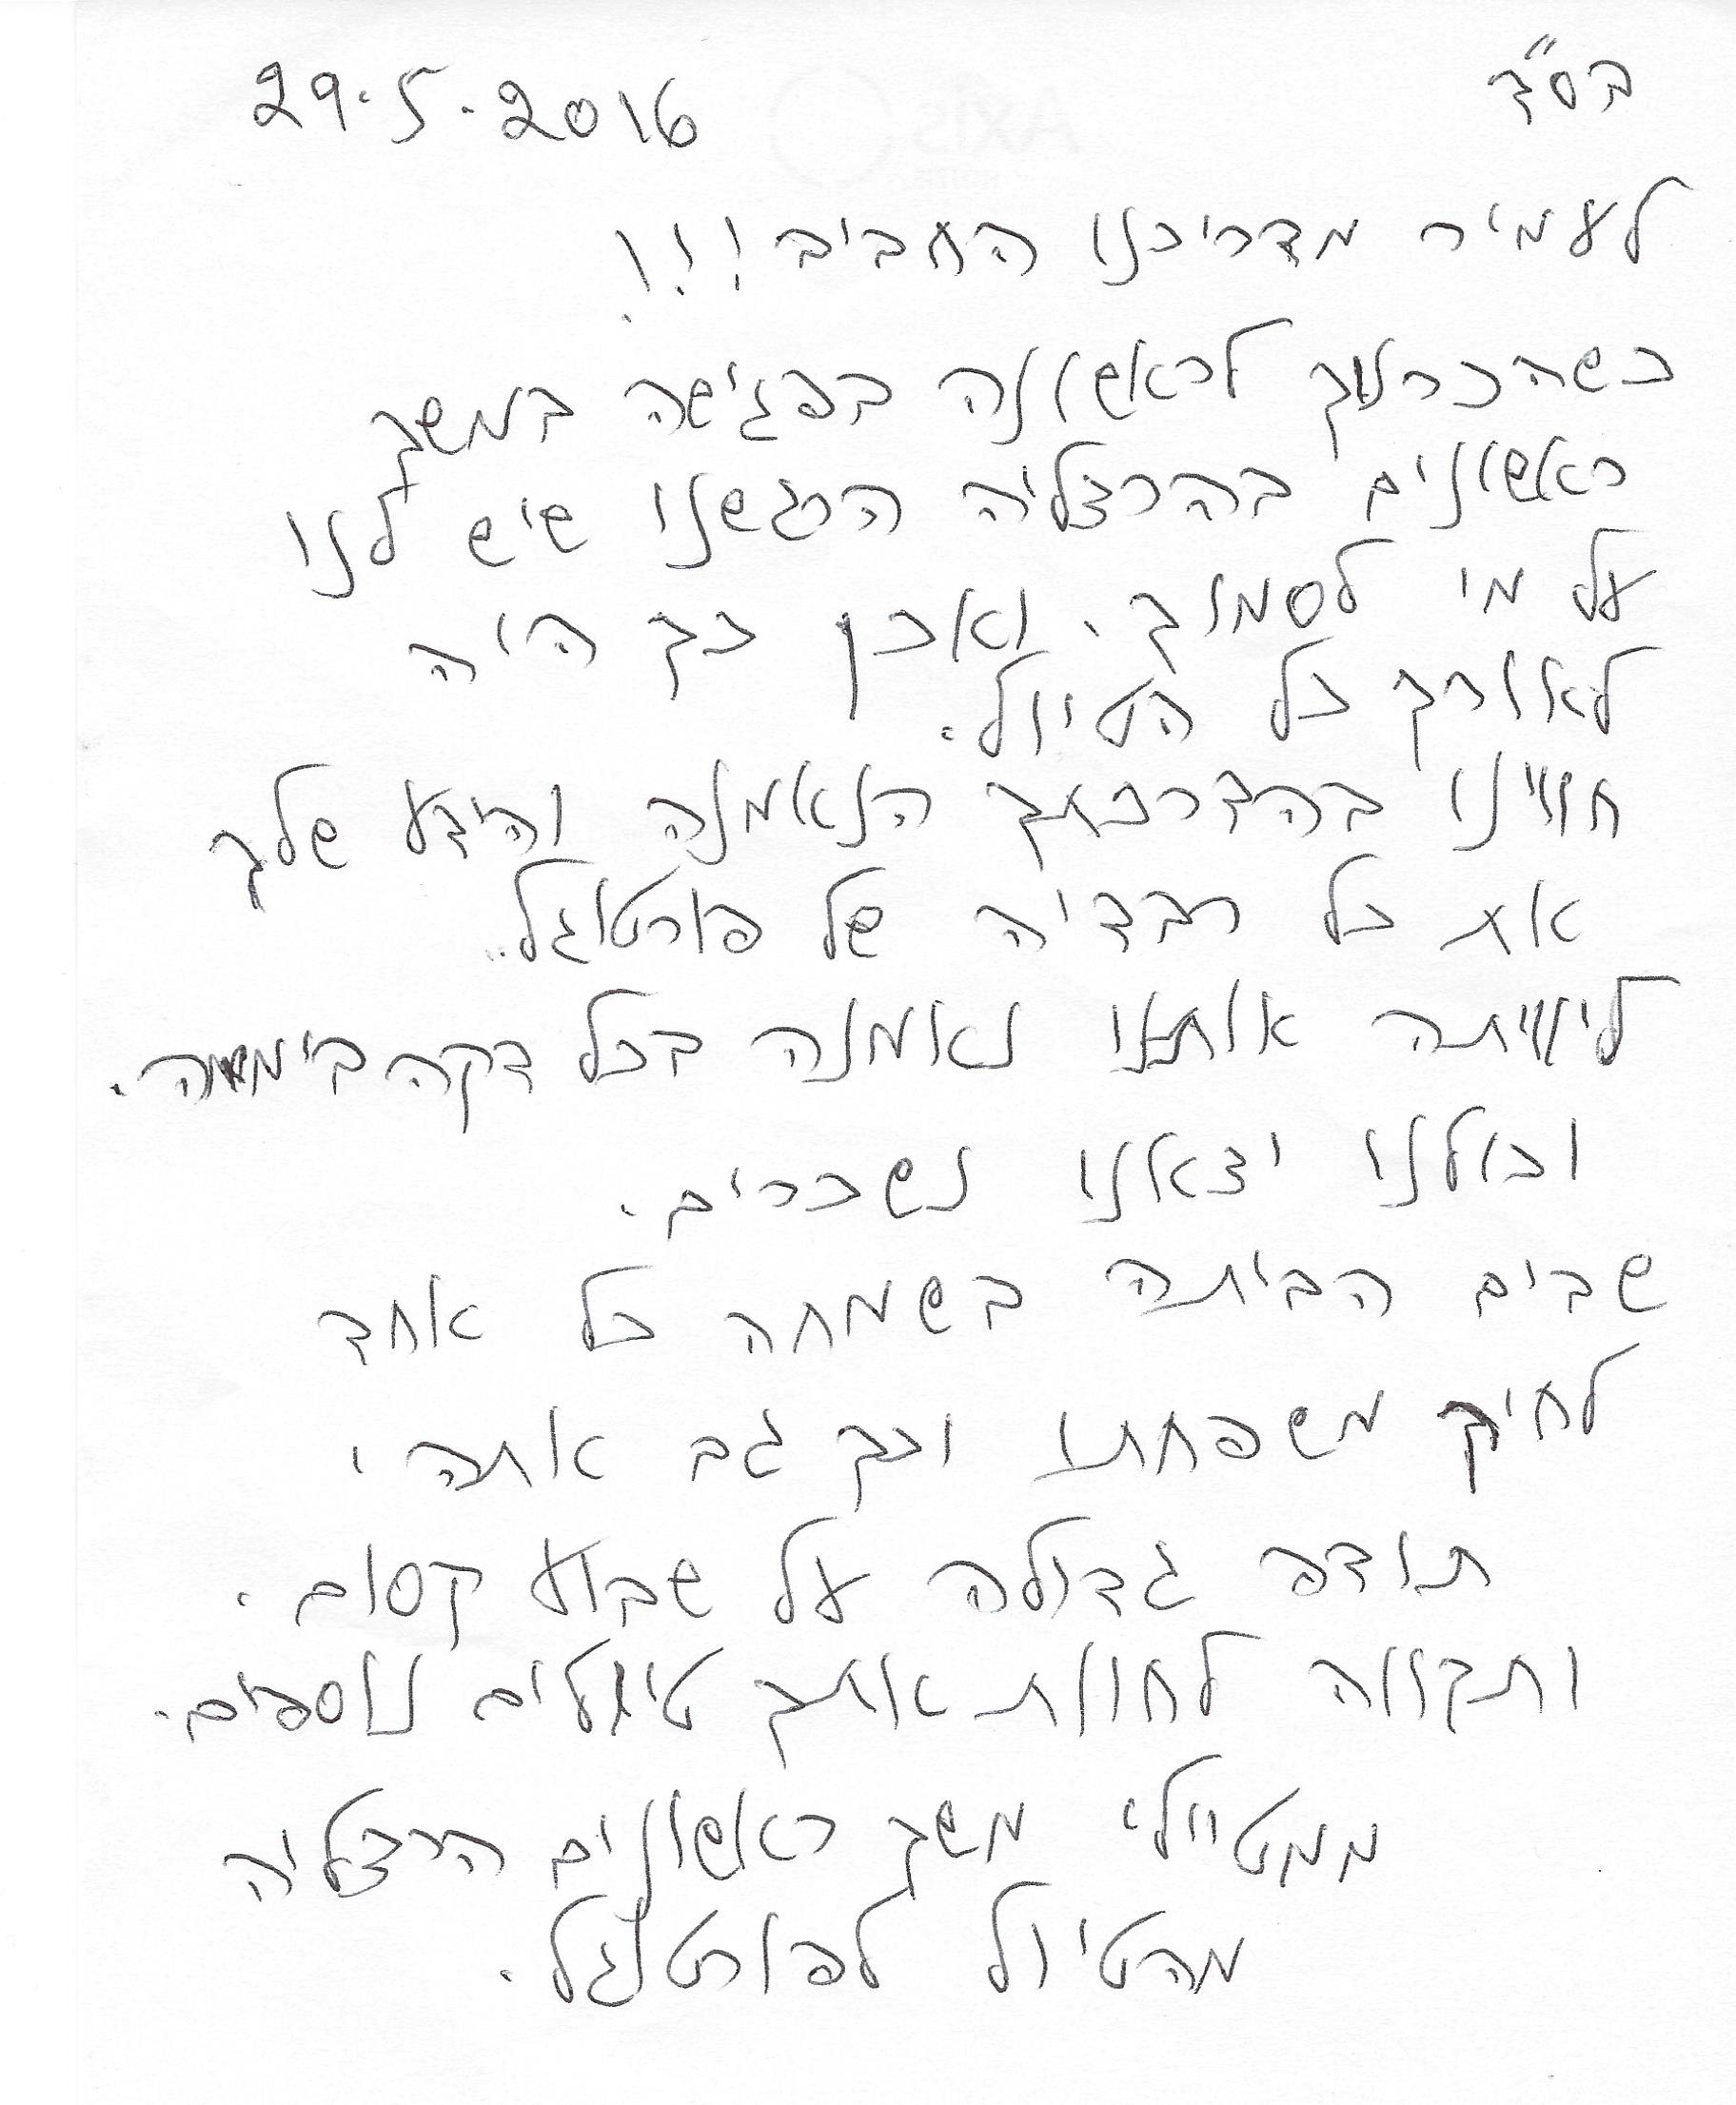 בס"ד 29.5.2016
לעמיר מדריכנו החביב!!!
כשהכרנוך לראשונה בפגישה במשק
ראשונים בהרצליה הרגשנו שיש לנו
על מי לסמוך. ואכן כך היה
לאורך כל הטיול.
חווינו בהדרכתך הנאמנה והידע שלך
את כל רבדיה של פורטוגל.
ליווית אותנו נאמנה בכל דקה
וכולנו יצאנו נשכרים.
שבים הביתה בשמחה כל אחד
לחיק משפחתו וכך גם אתה,
תודה גדולה על שבוע קסום.
ותקווה לחוות אתך טיולים נוספים.
ממטיילי משק ראשונים הרצליה
מהטיול לפורטוגל.